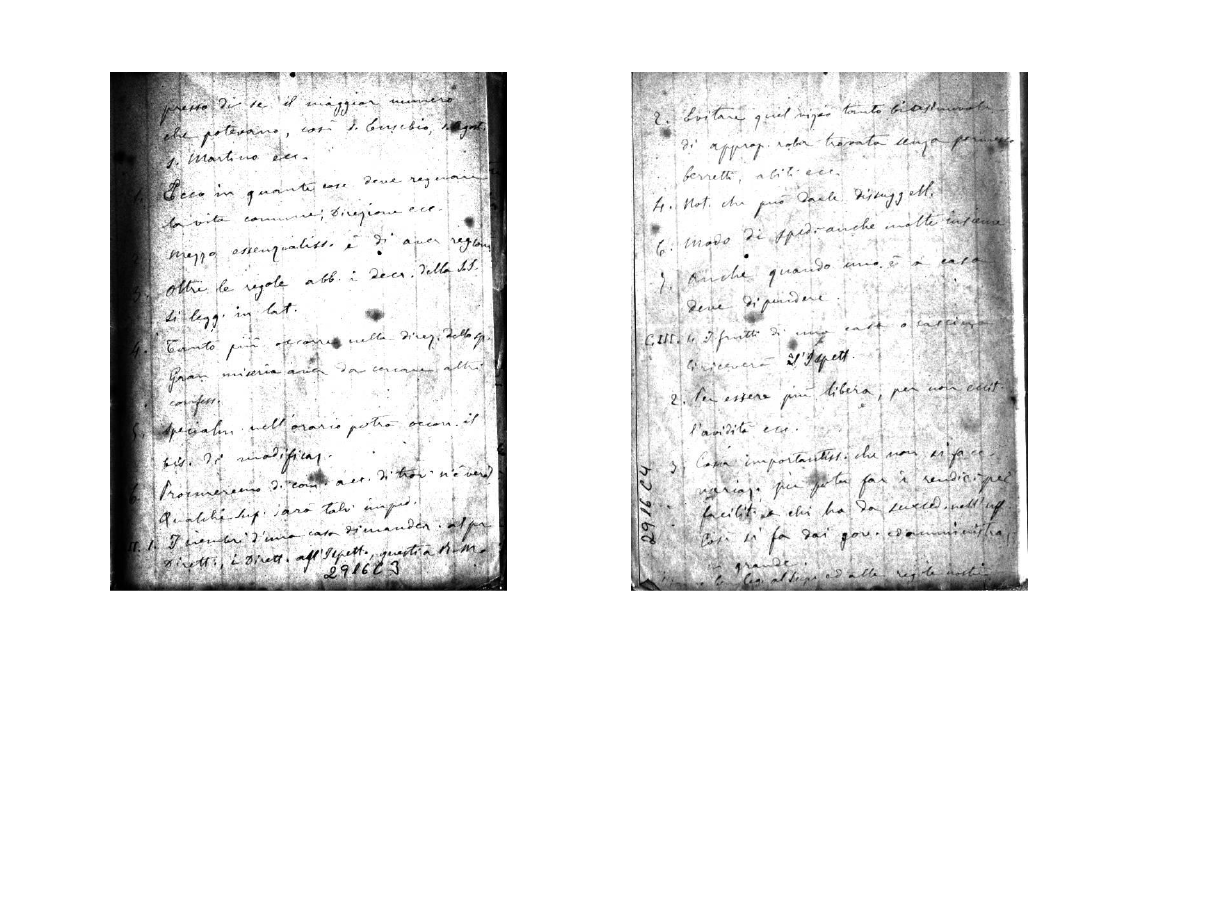 presso di se il maggior numero
che potevano, così S. Eusebio, S. Agost.
S. Martino ecc.
Ecco in quante cose deve regnare
la vita comune; Direzione ecc.
Mezzo essenzialiss. è di aver
3. Oltre le regole abb. i decr. della S.S.
si legg. in lat.
4. Tanto più occorre nella direz. dello sp.
Gran miseria aver da cercare altri
confess.
5. Specialm. nell'orario potrà occorr. il
bis. di modificaz.
Procureremo di com. acc. di
Qualche sup. sarà talv. imped.
II. 1. I membri d'una casa dimander. al pr.
Dirett., i Dirett. all'Ispett., questi a R. M.
2916C3
2. Evitare quel vizio tanto
di approp. roba trovata senza permesso
berretti, abiti ecc.
4. Not. che può darle dissuggell.
6. Modo di sped. anche molte insieme
7. Anche quando uno è a casa
deve dipendere.
C.III. 1. I frutti di una casa o cascina
li riceverà l'Ispett.
2. Per essere più libera, per non eccit.
l'avidità ecc.
3. Cosa importantiss. che non si facc.
più far i rendic. per
facilit. a chi ha da succed. nell'uff.
Così si fa dai gov. ed amministraz.
in grande.
ed alle regole
2916C4